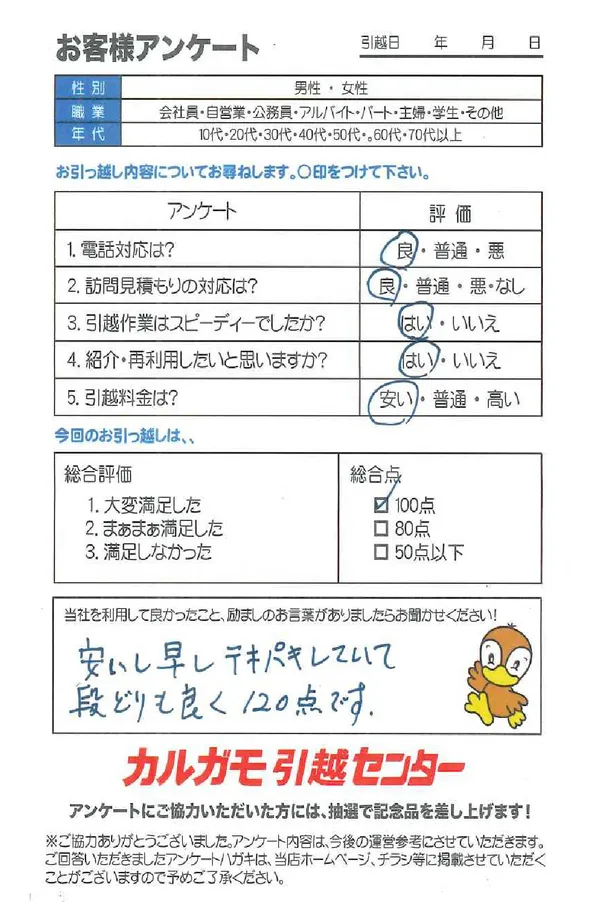 お客様アンケート
引越日 年 月 日
性別 男性・女性
職業 会社員・自営業・公務員・アルバイト・パート・主婦・学生・その他
年代 10代・20代・30代・40代・50代・。60代・70代以上
お引っ越し内容についてお尋ねします。〇印をつけて下さい。
アンケート 評価
1. 電話対応は? 良・普通・悪
2. 訪問見積もりの対応は? 良・普通・悪・なし
3. 引越作業はスピーディーでしたか? はい・いいえ
4. 紹介・再利用したいと思いますか? はい・いいえ
5. 引越料金は? 安い・普通・高い
今回のお引っ越しは、、
総合評価
1. 大変満足した
2. まぁまぁ満足した
3. 満足しなかった
総合点
100点
80点
50点以下
当社を利用して良かったこと、励ましのお言葉がありましたらお聞かせください!
安いし早しテキパキしていて
段どりも良く120点です.
カルガモ引越センター
アンケートにご協力いただいた方には、抽選で記念品を差し上げます!
※ご協力ありがとうございました。アンケート内容は、今後の運営参考にさせていただきます。
ご回答いただきましたアンケートハガキは、当店ホームページ、チラシ等に掲載させていただく
ことがございますので予めご了承ください。